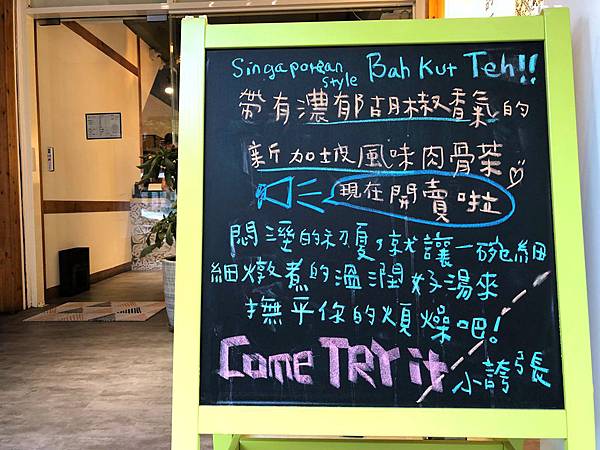 Singaporean style Bah Kut Teh!!
帶有濃郁胡椒香氣的
新加坡風味肉骨茶
現在開賣啦
悶溼的初夏,就讓一碗細
細燉煮的溫潤好湯來
撫平你的煩燥吧!
Come TRY it 小誇張